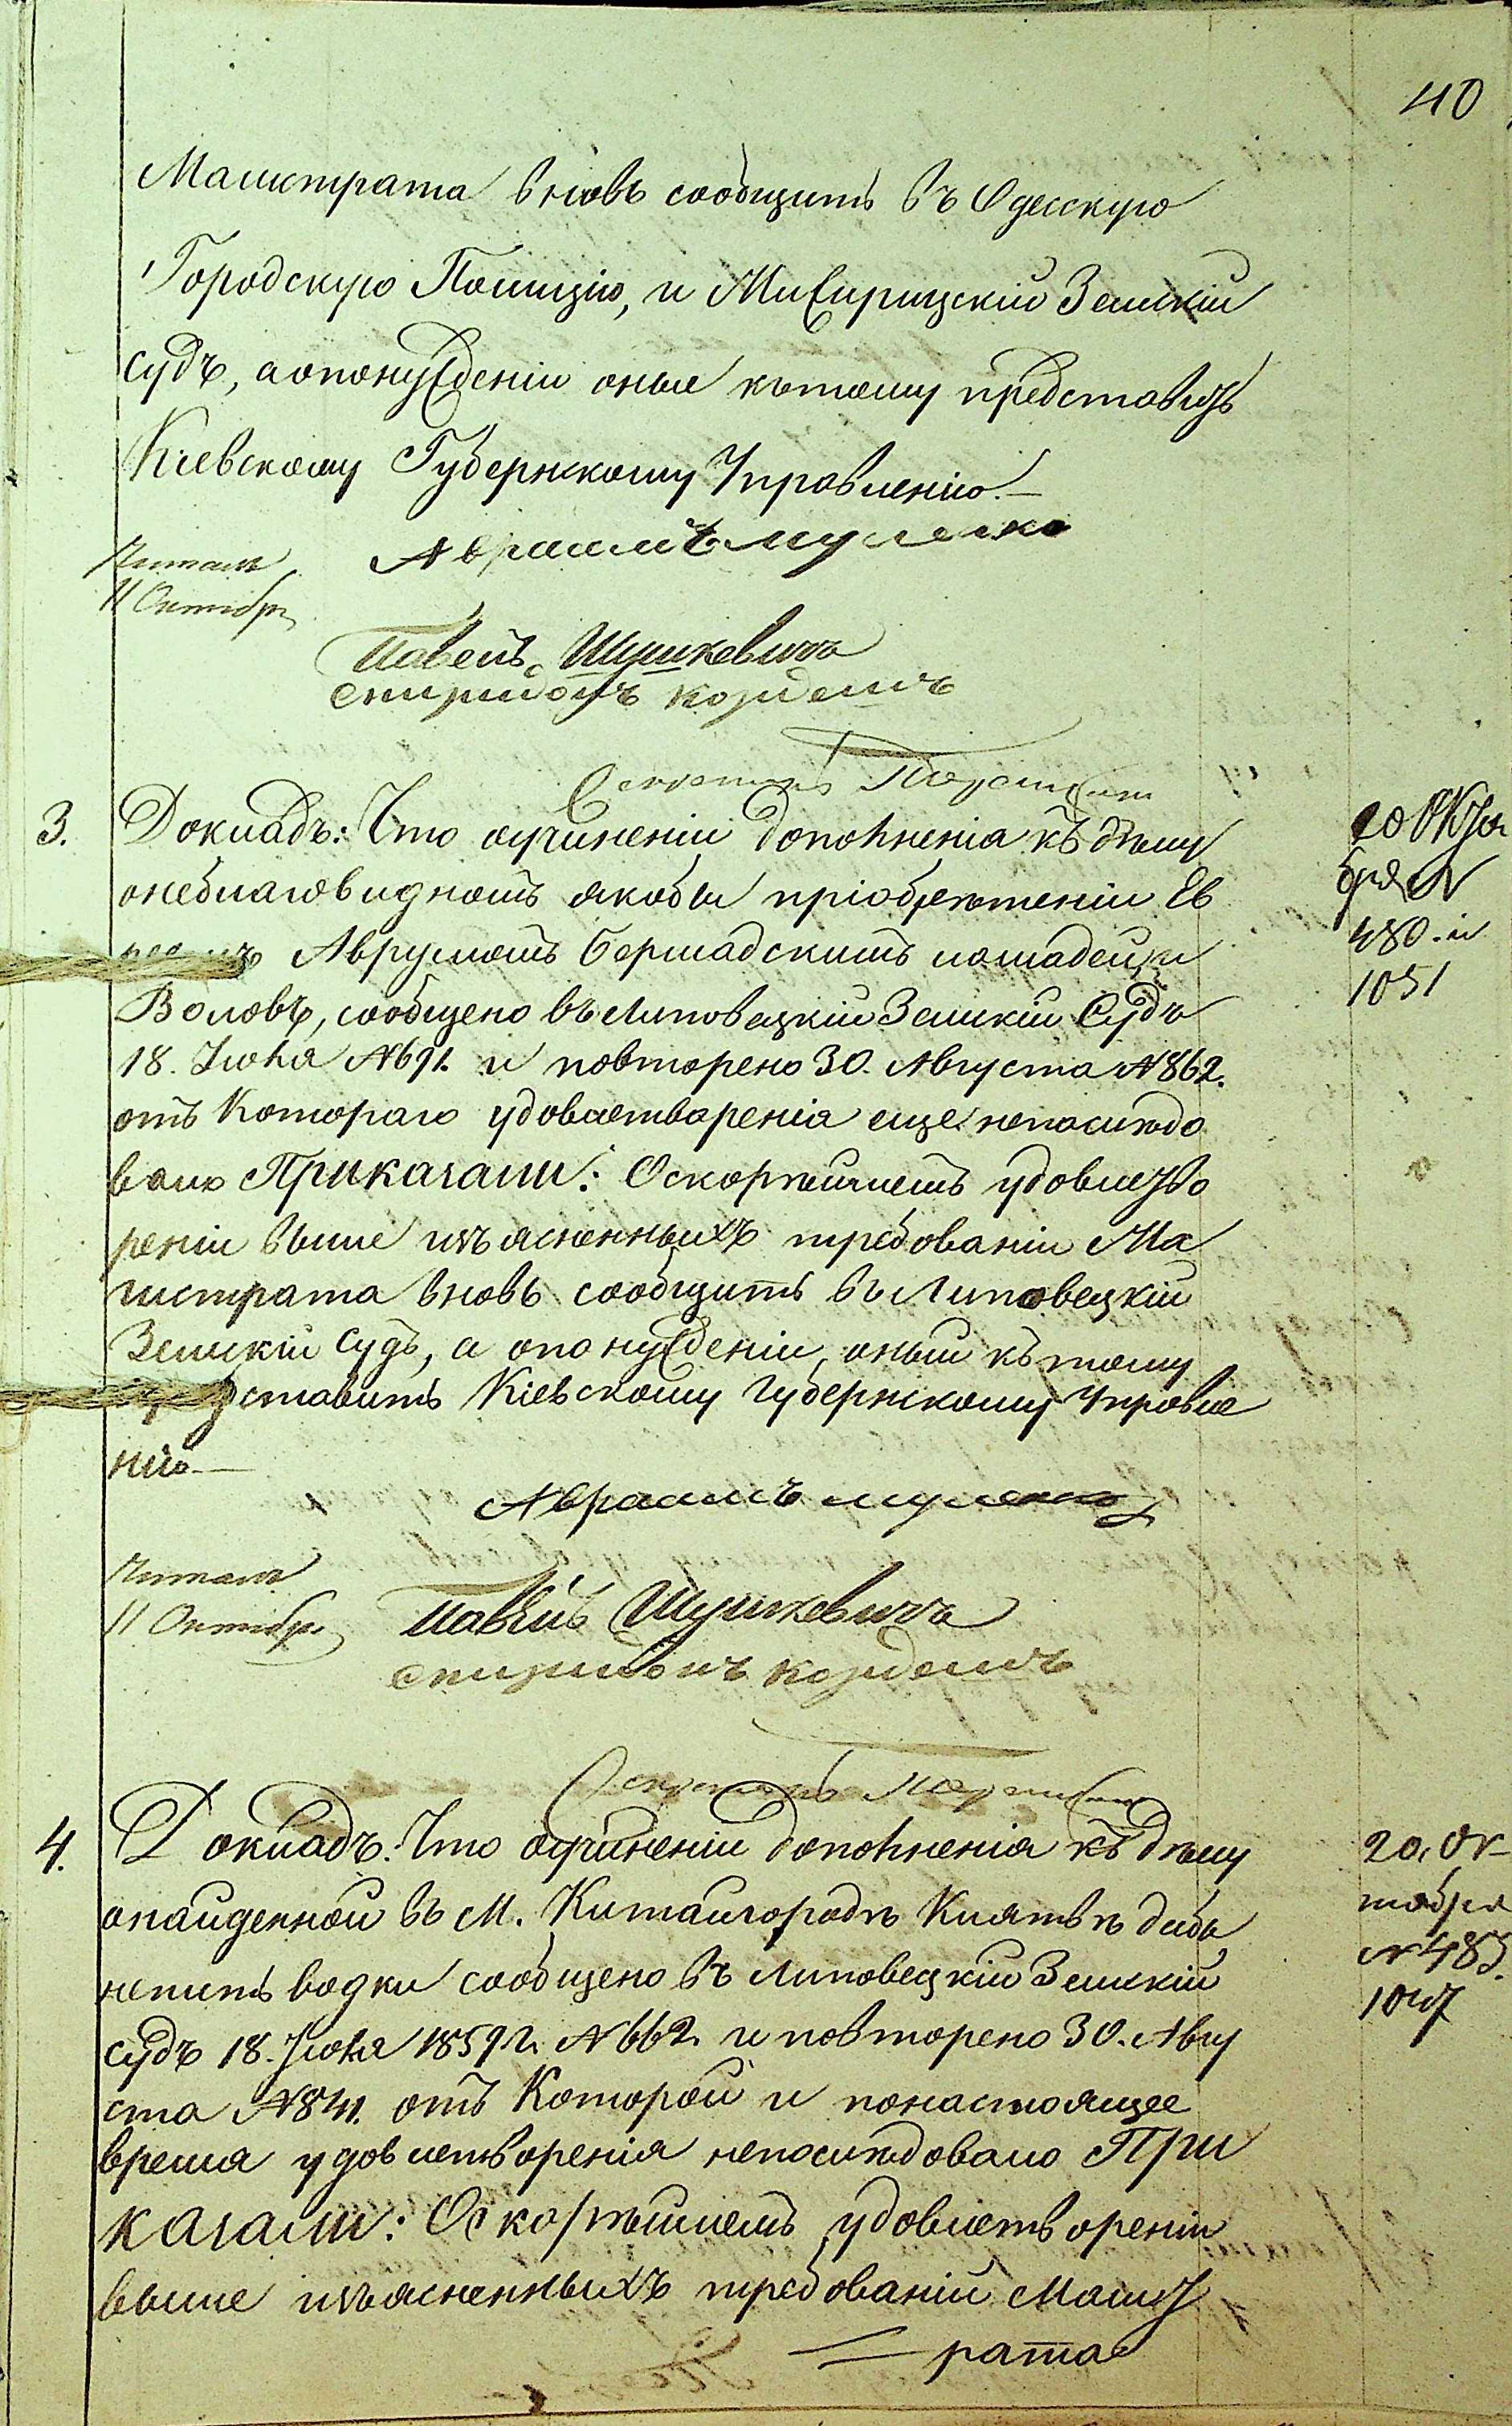 40
Магистрата вновь сообщить въ Одесскую
Городскую Полицію, и Земскій
судъ, а опонужденіи оныя ктому представить
Кіевскому Губернскому Управленію.—
Авраамъ
Читалъ
11 Октября
Павелъ Шушкевичъ
Спиридонъ
Секретарь
3.
Докладъ: Что оучиненіи дополненія къ дѣлу
онеблаговидномъ якобы пріобрѣтеніи Ев
Аврумомъ Бершадскимъ лошадей и
Воловъ, сообщено въ Липовецкій Земскій Судъ
18. Іюля №691. и повторено 30. Августа №862.
отъ Котораго удовлетваренія еще непослѣдо
вало Приказали: Оскорѣйшемъ удовлетво
реніи выше изъясненныхъ требованій Ма
гистрата вновь сообщить въ Липовецкій
Земскій судъ, а опонужденіи, оный къ тому
представить Кіевскому Губернскому Управле
нію—
20 Октя
бря №
480. и
1051
Авраамъ
Читалъ
11 Октября
Павелъ Шушкевичъ
Спиридонъ
Секретарь
4.
Докладъ: Что оучиненіи дополненія къ дѣлу
онайденной въ М. Китайгородѣ Клятвѣ дабы
непить водки сообщено въ Липовецкій Земскій
судъ 18. Іюля 1859 г. №662. и повторено 30. Авгу
ста №841. отъ Которой и понастоящее
время удовлетворенія непослѣдовало При
казали: Оскорѣйшемъ удовлетвореніи
выше изъясненныхъ требованій Магист
рата
20. Ок
тября
№483.
1047